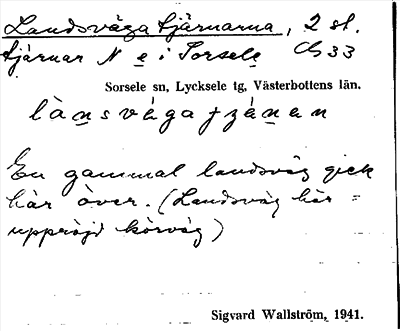 Landsvägatjärnarna, 2 st.
tjärnar N e i Sorsele Ch 33
Sorsele sn, Lycksele tg, Västerbottens län.
En gammal landsväg gick
här över. (Landsväg här =
uppröjd körväg)
Sigvard Wallström, 1941.